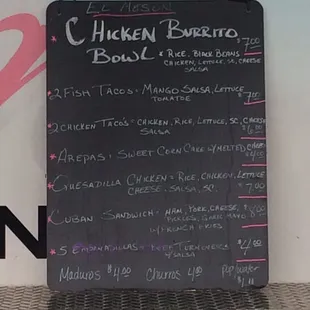 EL MESON
CHICKEN BURRITO $7.00
BOWL * RICE, BLACK BEANS
CHICKEN, LETTUCE, SC, CHEESE
SALSA
* 2 FISH TACOS = MANGO SALSA, LETTUCE $7.00
TOMATOE
* 2 CHICKEN TACO'S = CHICKEN, RICE, LETTUCE, SC, CHEESE
SALSA $6.00
* AREPAS = SWEET CORN CAKE W/MELTED CHEESE
$4.00
* QUESADILLA CHICKEN = RICE, CHICKEN, LETTUCE
CHEESE, SALSA, SC. $7.00
* CUBAN SANDWICH = HAM, PORK, CHEESE, $8.00
PICKLES, MAYO
FRENCH FRIES
* 5 EMPANADILLAS = BEEF TURNOVERS $4.00
SALSA
Maduros $4.00 Churros 4.00 Pop, Water
N